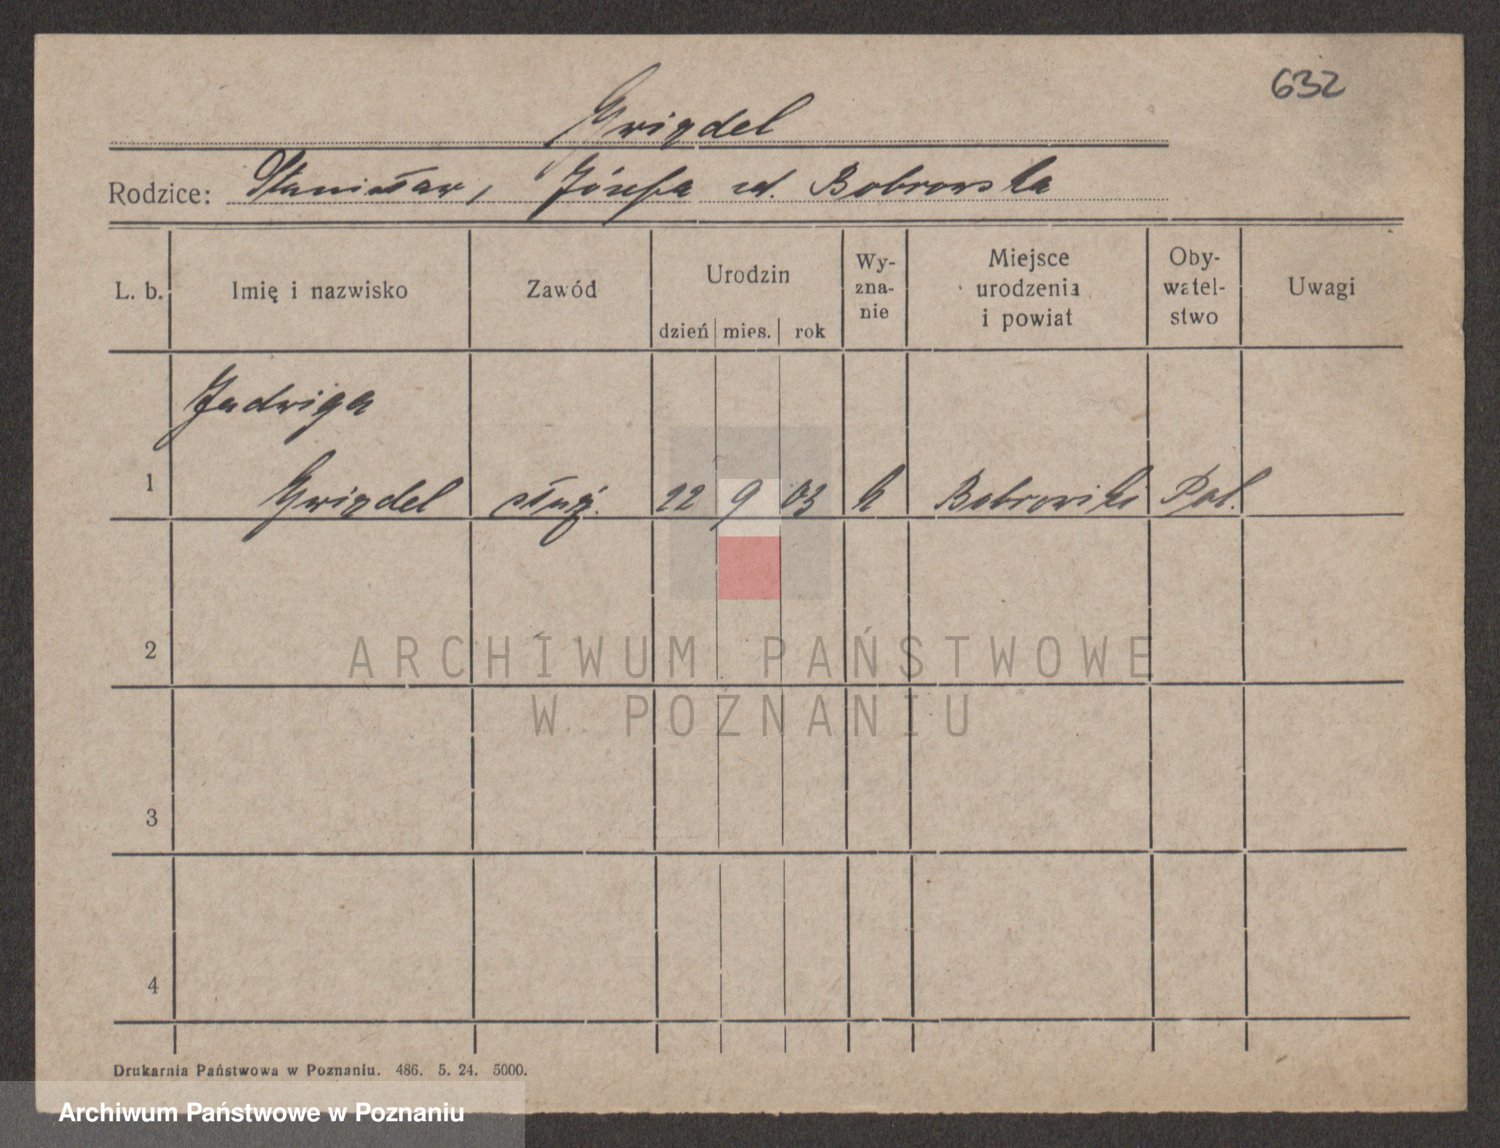 632
Gwizdel
Rodzice: Stanisław, Józefa zd. Bobrowska
L. b. Imię i nazwisko Zawód Urodzin dzień mies. rok Wy-zna-nie Miejsce urodzenia i powiat Oby-watel-stwo Uwagi
Jadwiga
1 Gwizdel służ. 22 9 03 k Pol.
2
3
4
Drukarnia Państwowa w Poznaniu. 486. 5. 24. 5000.
ARCHIWUM PAŃSTWOWE
W POZNANIU
Archiwum Państwowe w Poznaniu